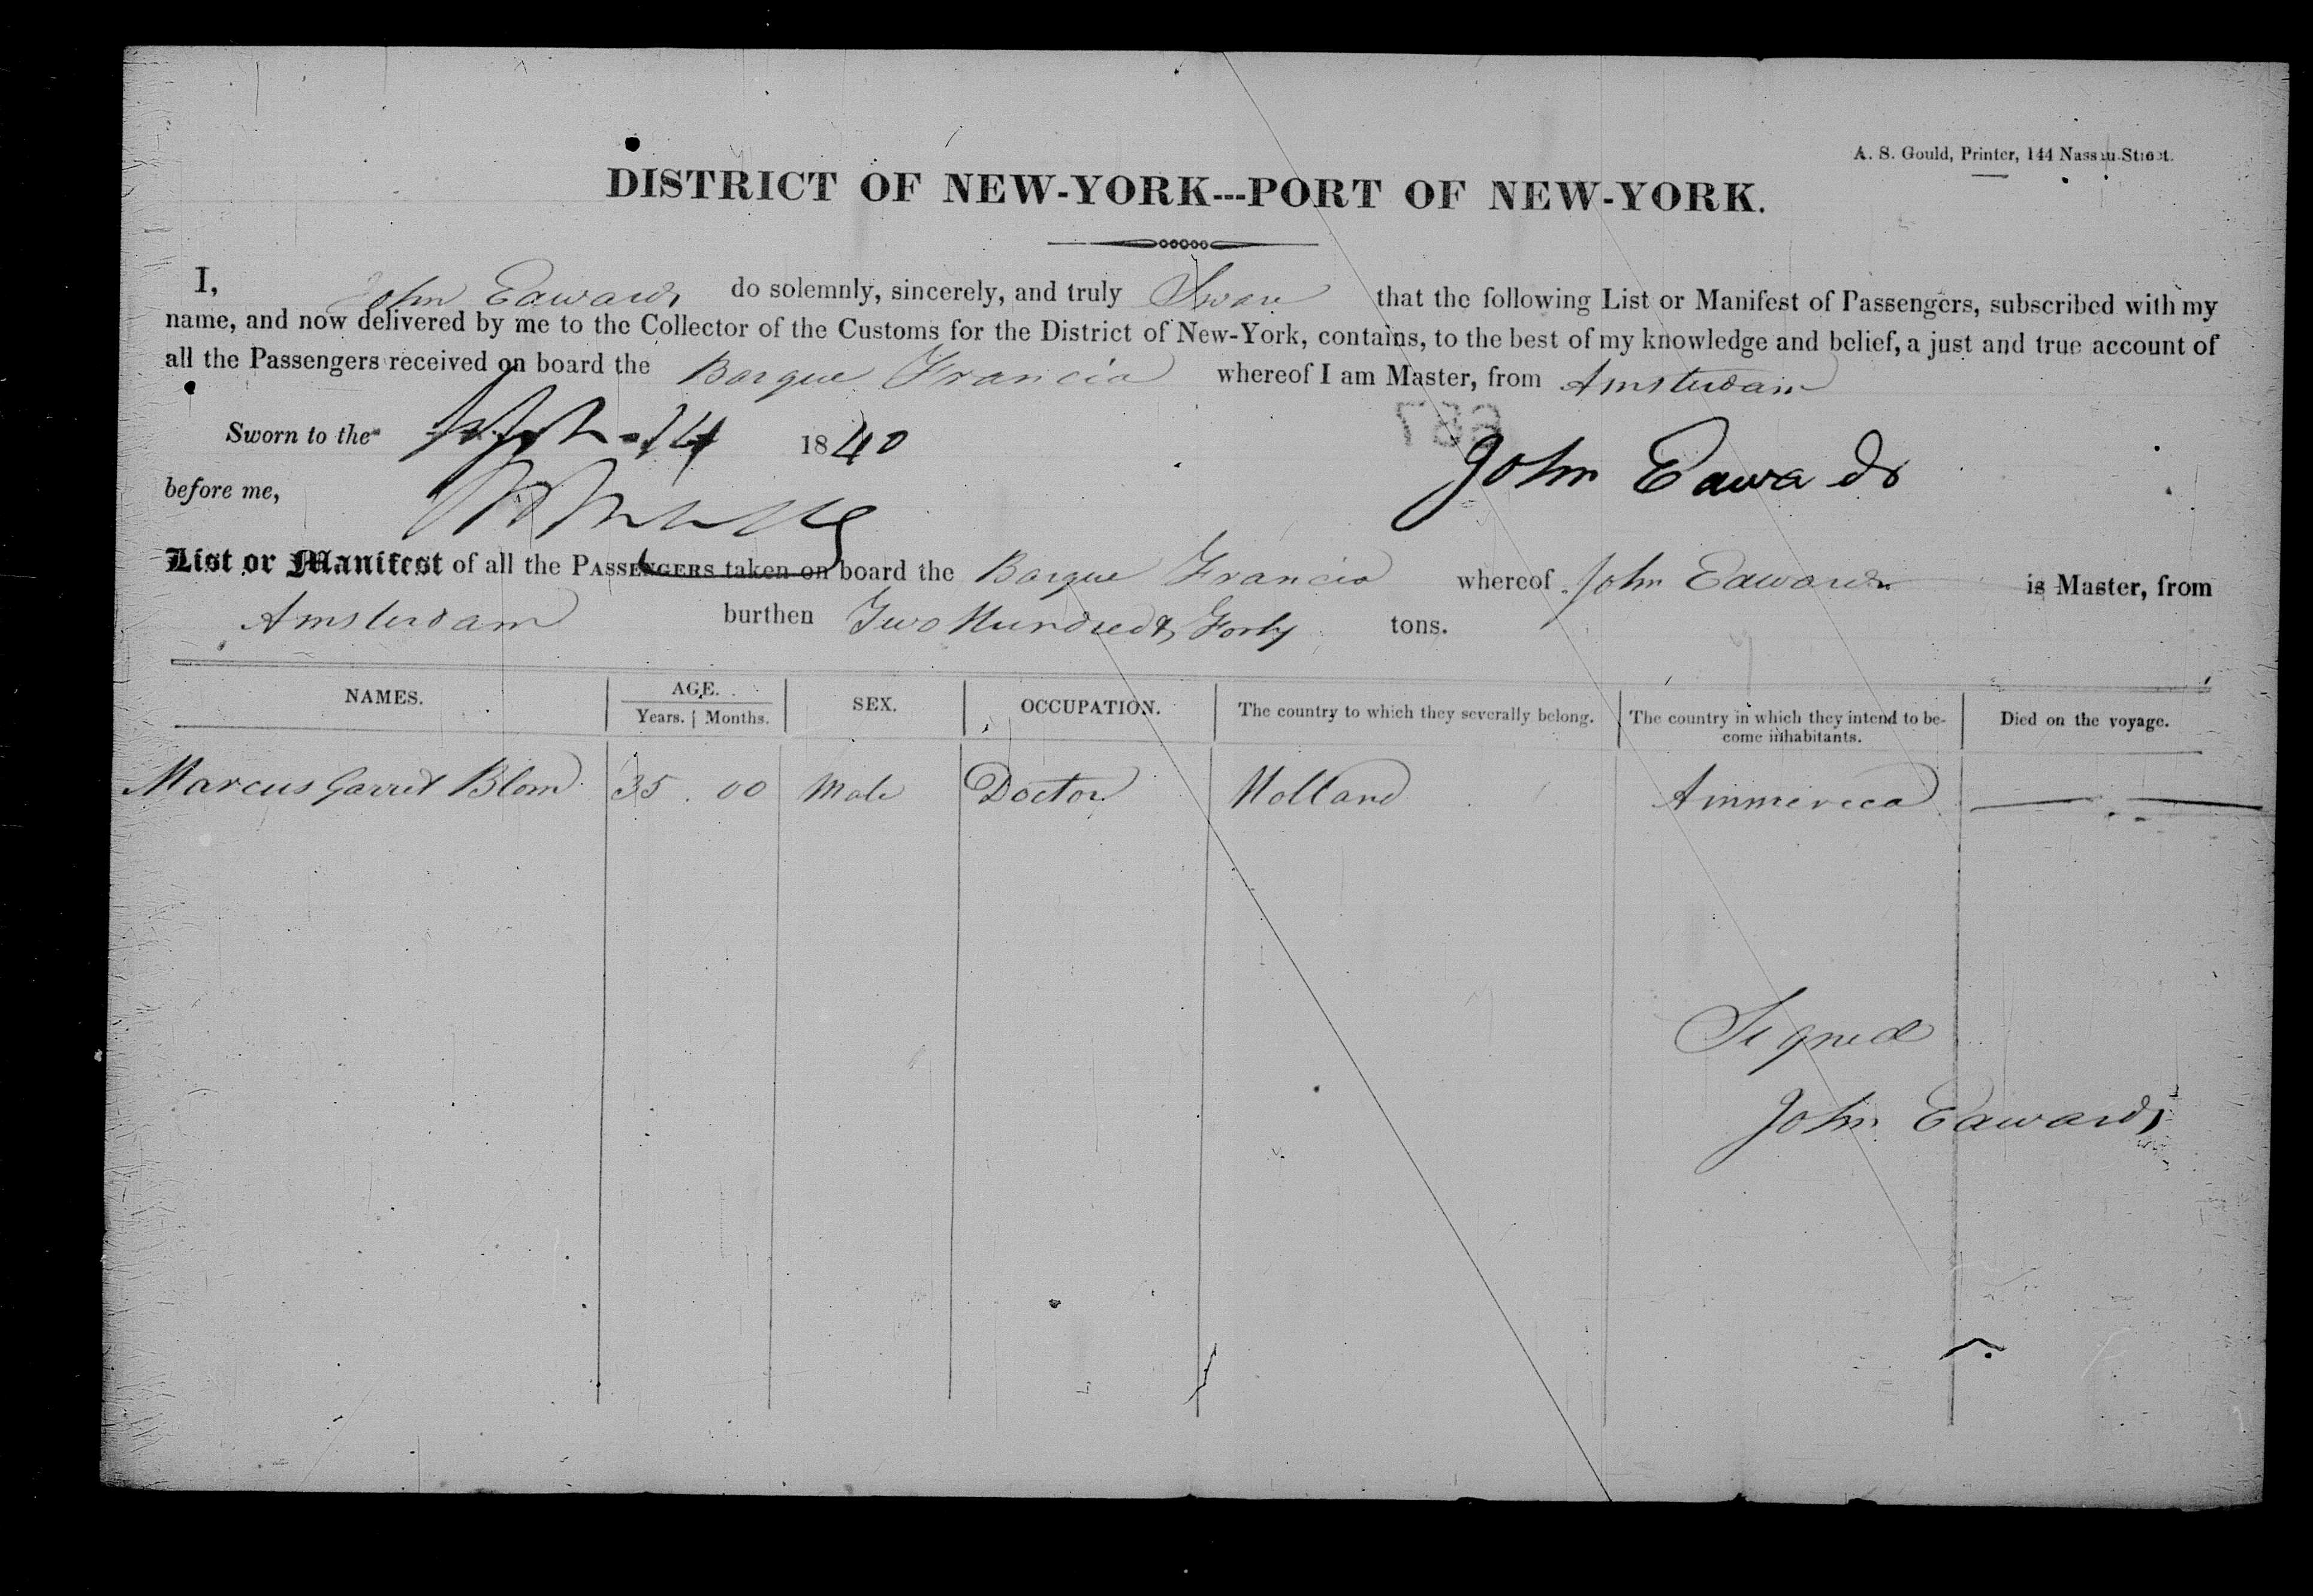 A. S. Gould, Printer, 144 Nassau Street.
DISTRICT OF NEW-YORK---PORT OF NEW-YORK.
I, John Edwards do solemnly, sincerely, and truly Swear that the following List or Manifest of Passengers, subscribed with my
name, and now delivered by me to the Collector of the Customs for the District of New-York, contains, to the best of my knowledge and belief, a just and true account of
all the Passengers received on board the Barque Francis whereof I am Master, from Amsterdam
Sworn to the Sept 14 1840
John Edwards
before me,
List or Manifest of all the PASSENGERS taken on board the Barque Francis whereof John Edwards is Master, from
Amsterdam burthen Two Hundred & Forty tons.
NAMES. AGE. SEX. OCCUPATION. The country to which they severally belong. The country in which they intend to be- Died on the voyage.
Years. Months. come inhabitants.
Marcus Garrit Blom 35 . 00 Male Doctor Holland Ammereca
Signed
John Edwards